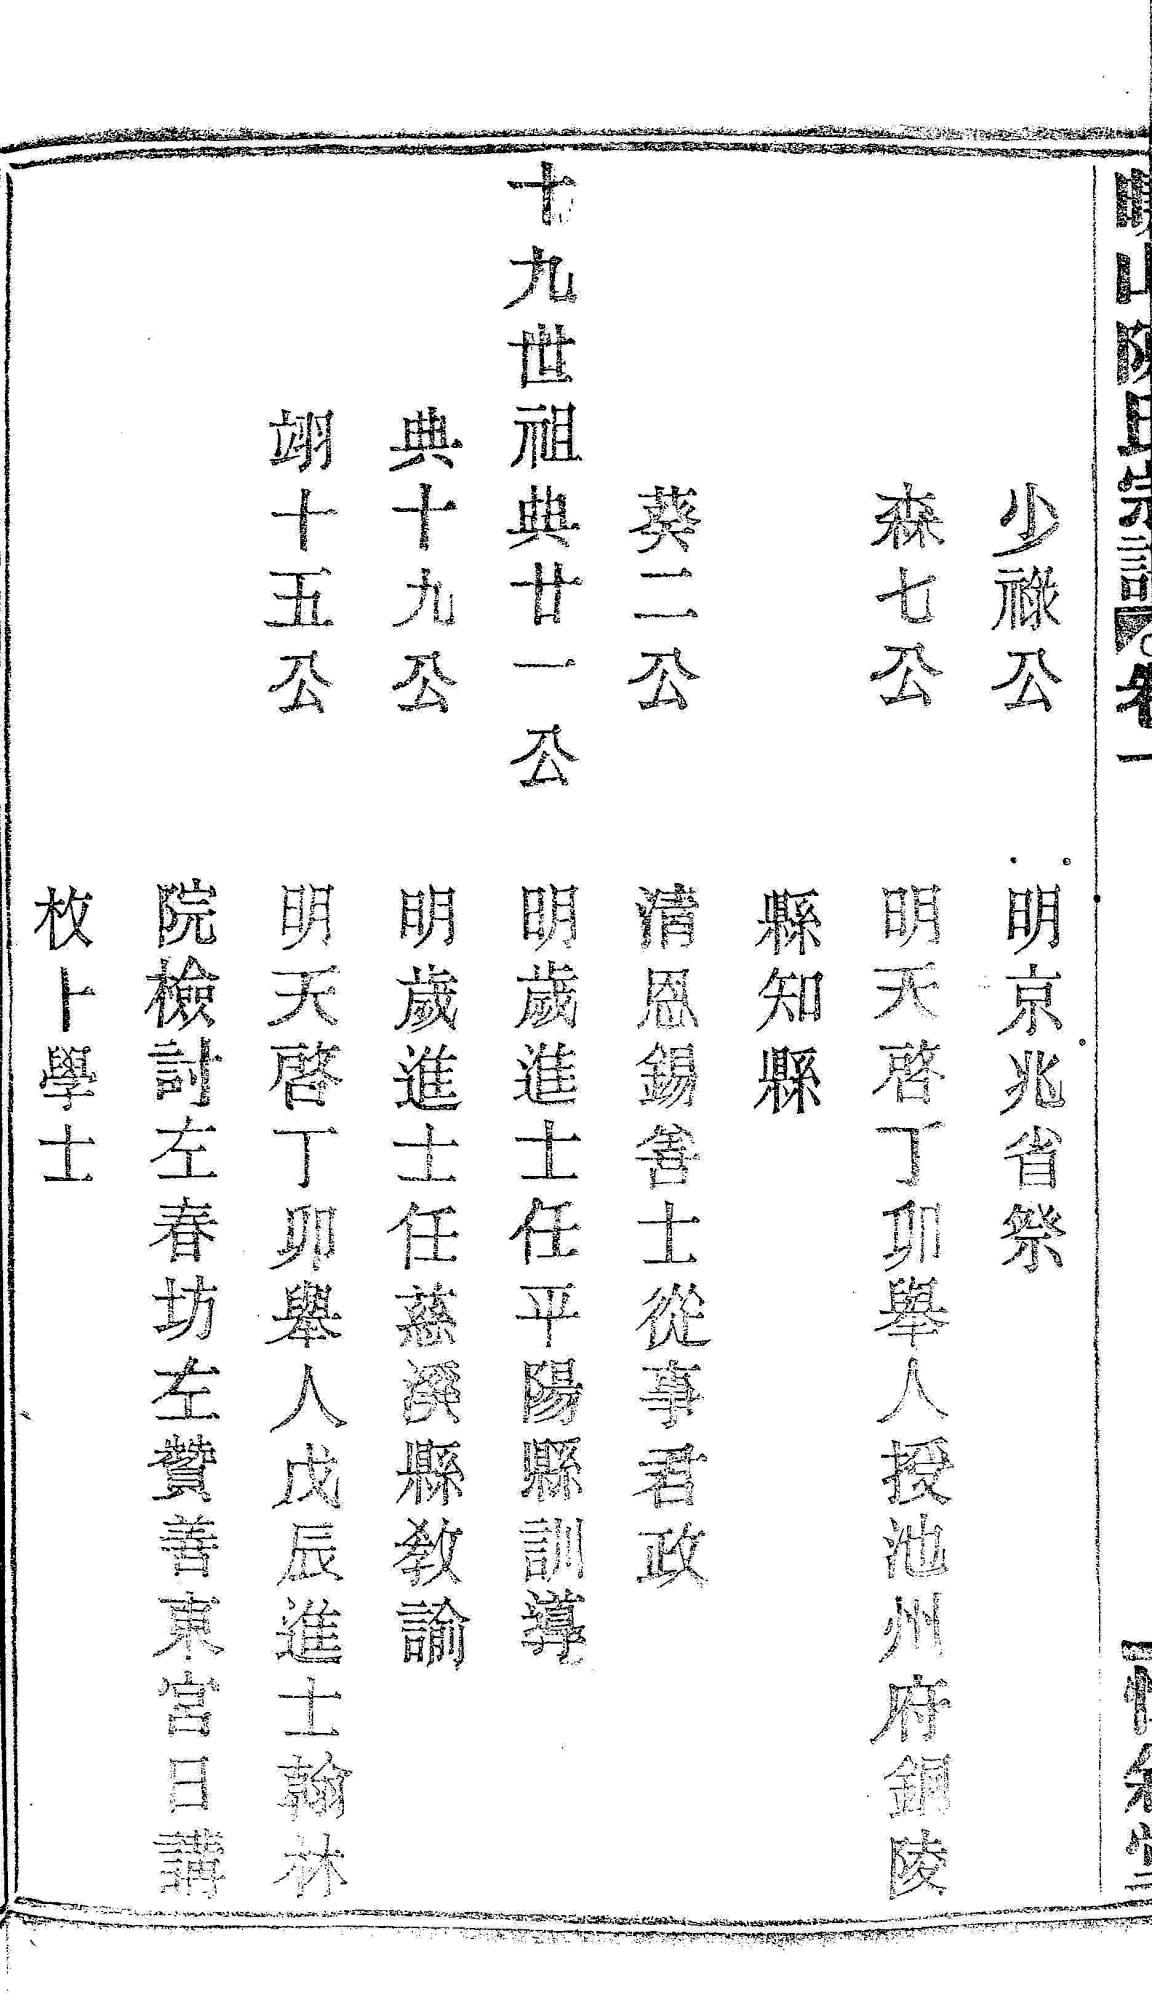 山陳氏宗譜 卷一
少祿公 明京兆省祭
森七公 明天啓丁卯舉人授池州府銅陵
縣知縣
葵二公 清恩錫善士從事君政
十九世祖典廿一公 明歲進士任平陽縣訓導
典十九公 明歲進士任慈谿縣教諭
翊十五公 明天啓丁卯舉人戊辰進士翰林
院檢討左春坊左贊善東宮日講
枚卜學士